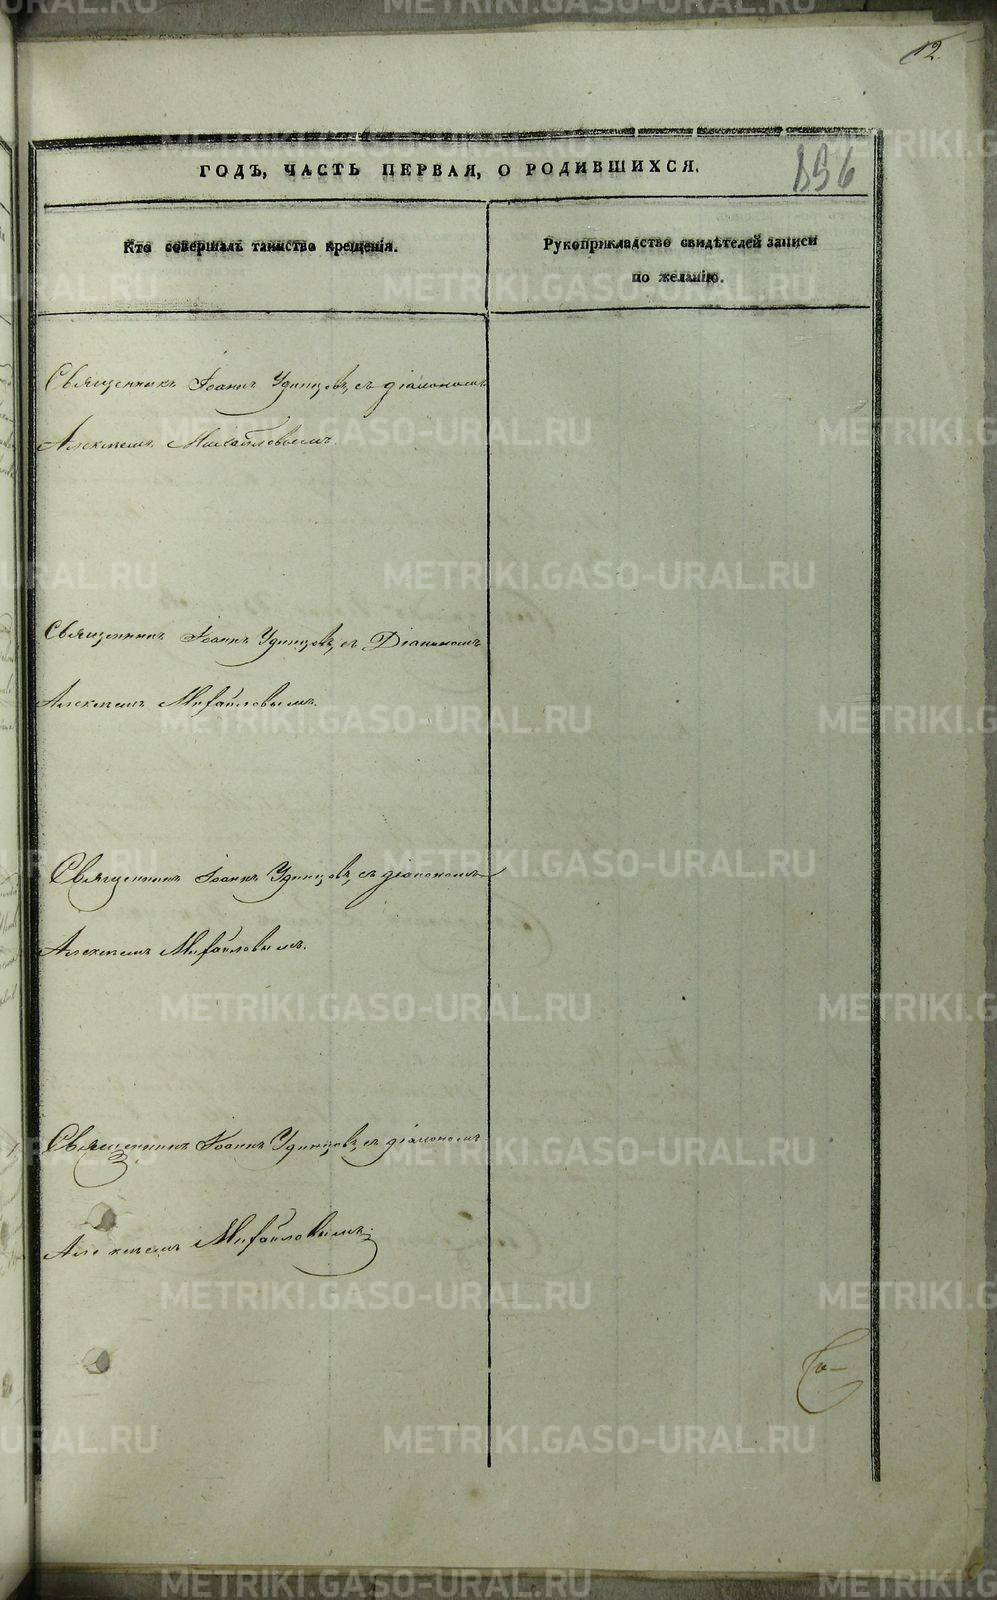 12.
896
ГОДЪ, ЧАСТЬ ПЕРВАЯ, О РОДИВШИХСЯ.
Кто совершалъ таинство крещенія.
Рукоприкладство свидѣтелей записи
по желанію.
Священникъ Іоаннъ Удинцовъ, съ діакономъ
Алексѣемъ Михайловымъ.
Священникъ Іоаннъ Удинцовъ, съ Діакономъ
Алексѣемъ Михайловымъ.
Священникъ Іоаннъ Удинцовъ, съ діакономъ
Алексѣемъ Михайловымъ.
Священникъ Іоаннъ Удинцовъ, съ діакономъ
Алексѣемъ Михайловымъ.
METRIKI.GASO-URAL.RU